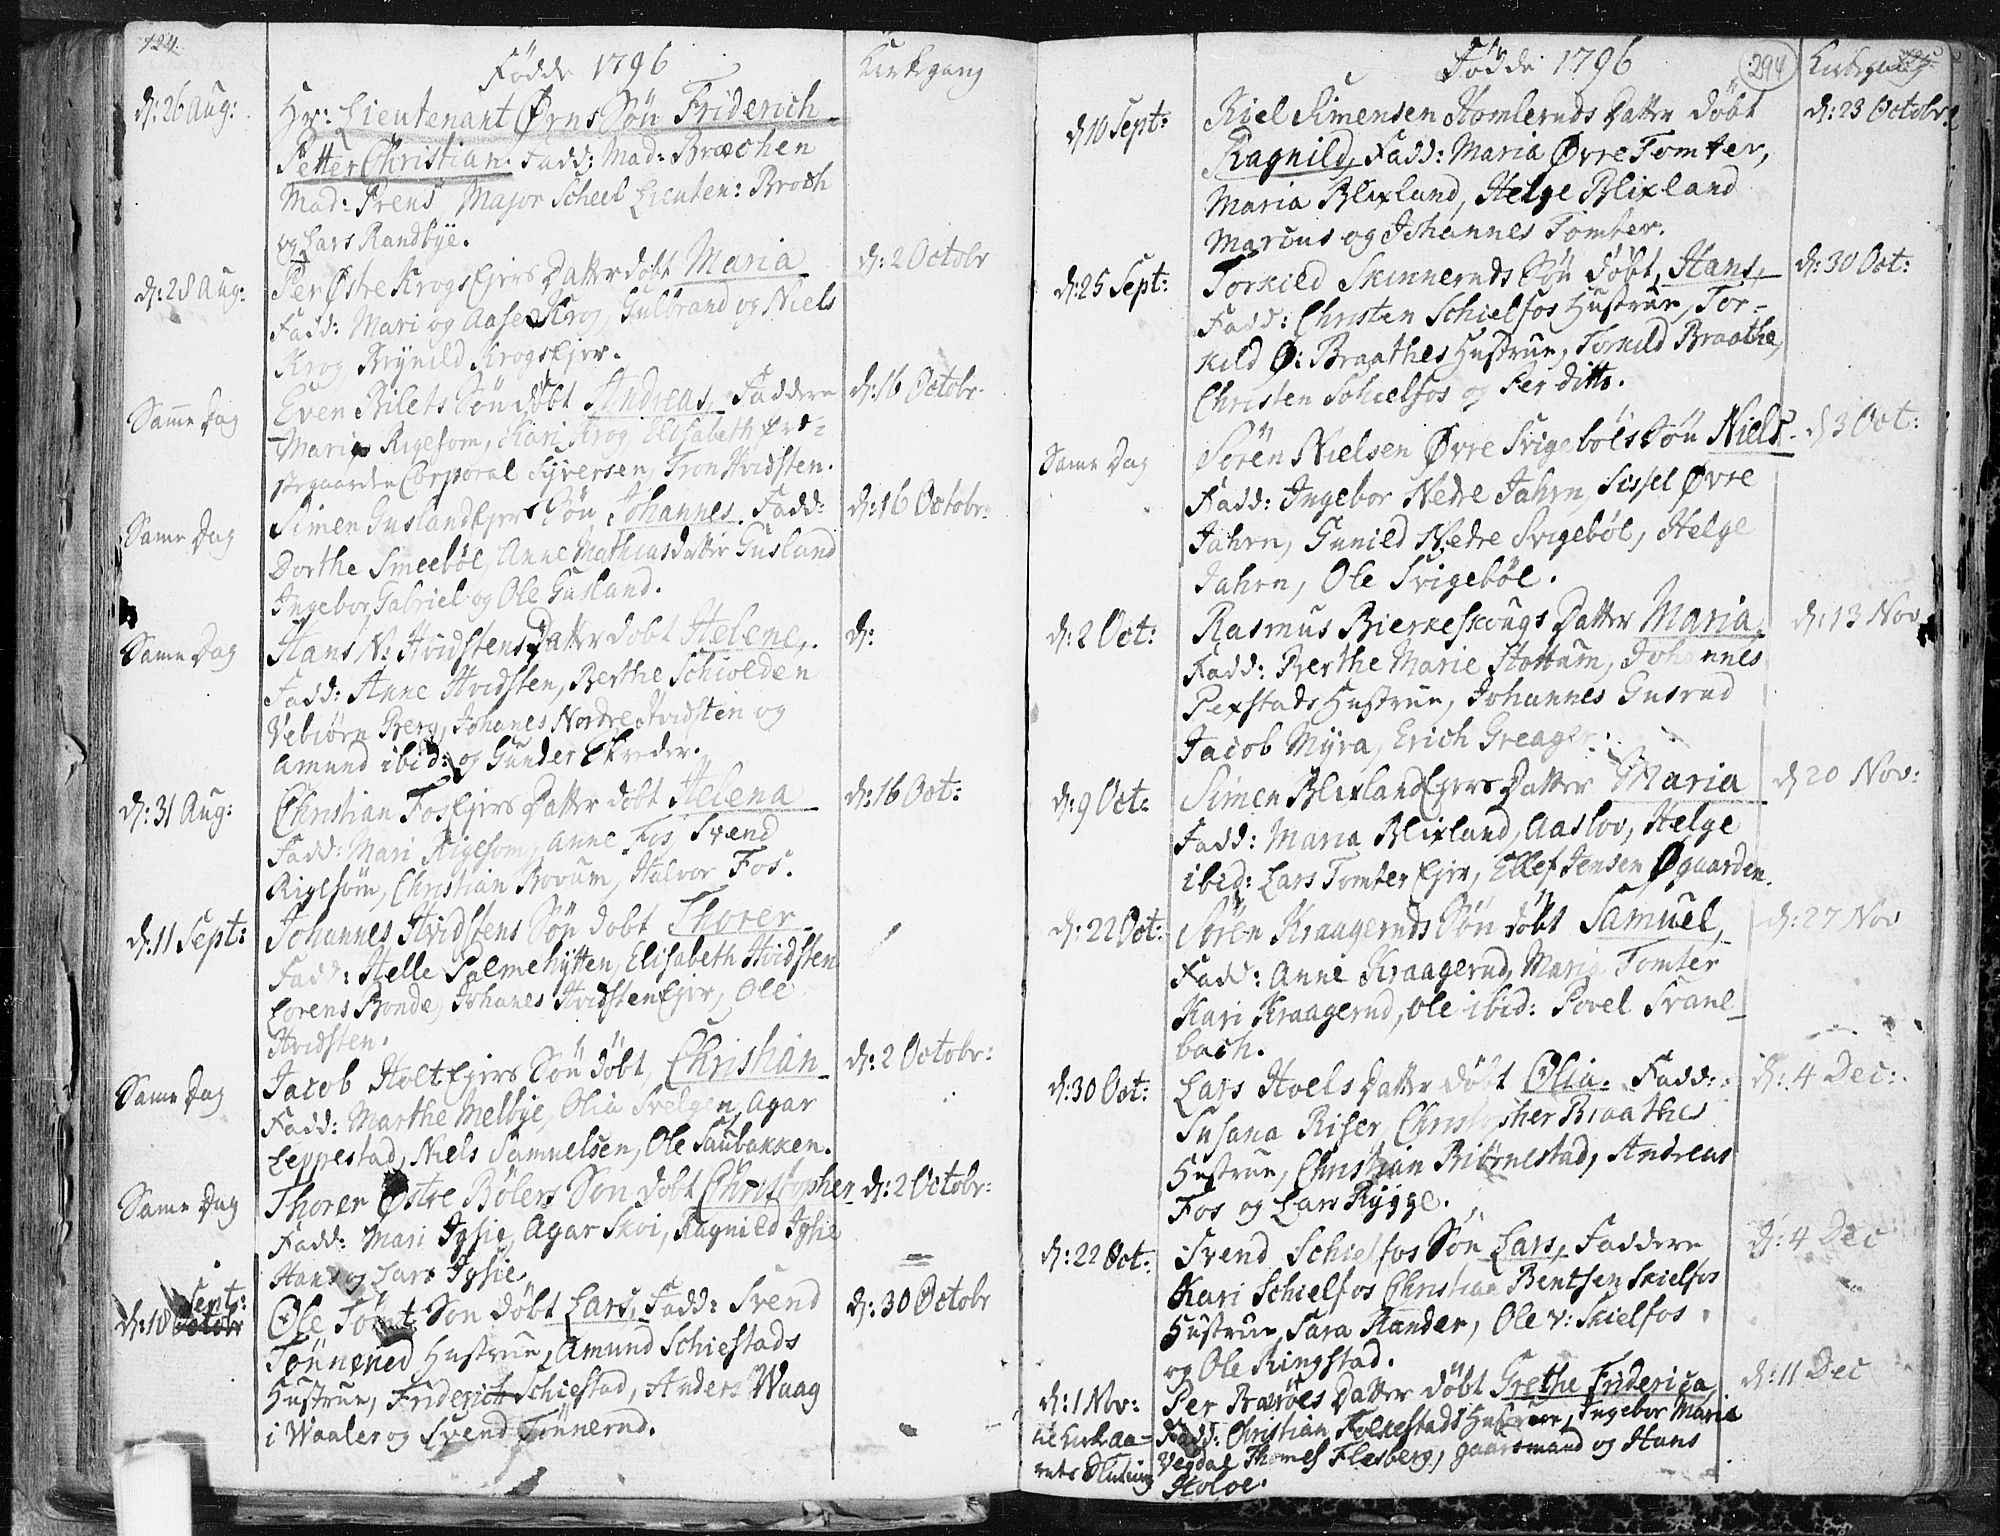 124.
Födde 1796
Kirkegang
d: 26 Aug:
Hr: Lieutenant Ørns Sön Friderich
Petter Christian. Fadd: Mad: Bræchen
Mad: Prens Major Scheel Lieuten: Broch
og Lars Randbye.
d: 28 Aug:
Per Østre Krogs Ejers Datter döbt Maria
d: 2 Octobr
Fadd: Mari og Aase Krog, Gulbrand og Niels
Krog Brynild Krogsejer.
Same Dag
Even Bilets Sön döbt Andreas Faddere
d: 16 Octobr.
Maria Rigesom, Kari Krog, Elisabeth
Corporal Syversen, Tron Hvidsten.
Same Dag
Simen Guslandejers Sön Johannes Fadd:
d: 16 Octobr:
Dorthe Smeeböl, Anne Mathiasdatter Gusland
Ingebor, Gabriel og Ole Gusland.
Same Dag
Hans N: Hvidstens Datter döbt Helene,
d:
Fadd: Anne Hvidsten, Berthe Schiolden
Vebiörn Berg, Johanes Nordre Hvidsten og
Amund ibid: og Gunder Ekreder.
d: 31 Aug:
Christian Fosejers Datter döbt Helena
d: 16 Oct:
Fadd: Mari Rigesom, Anne Fos, Svend
Rigesom, Christian Bovum, Halvor Fos.
d: 11 Sept:
Johannes Hvidstens Sön döbt Thorer
Fadd: Helle Salmehytten, Elisabeth Hvidsten
Lorens Bonde, Johanes Hvidstenejer, Ole
Hvidsten.
Same Dag
Jacob Holtejers Sön döbt, Christian
d: 2 Octobr:
Fadd: Marthe Melbye, Olia Svelgen, Agar
Leppestad, Niels Samuelsen, Ole Saubakken.
Same Dag
Thorer Østre Bölers Sön döbt Christopher
d: 2 Octobr:
Fadd: Mari Igsie, Agar Skoi, Ragnild Igsie
Hans og Lars Igsie
Sept:
d: 18 Octobr
Ole Tömt Sön döbt Lars, Fadd: Svend
d: 30 Octobr
Tönnerud Hustrue, Amund Schiestads
Hustrue, Friderich Schiestad, Anders Waag
i Waaler og Svend Tönnerud.
Födde 1796
294
Kirkegang
d 10 Sept:
Kiel Simensen Homleruds Datter döbt
d: 23 Octobr:
Ragnild, Fadd: Maria Øvre Tomter,
Maria Blixland, Helge Blixland
Marcus og Johannes Tomter.
d: 25 Sept:
Torkild Skinneruds Sön döbt, Hans,
d: 30 Oct:
Fadd: Christen Schielfos Hustrue, Tor-
kild Ø: Braathes Hustrue, Torkild Braathe,
Christen Schielfos og Per ditto.
Same Dag
Sören Nielsen Øvre Svigeböls Sön Niels
d 3 Oct:
Fadd: Ingebor Nedre Jahrn, Sissel Øvre
Jahrn, Gunild Nedre Svigeböl, Helge
Jahrn, Ole Svigeböl.
d: 2 Oct:
Rasmus Bierkeskougs Datter Maria,
d: 13 Nov
Fadd: Berthe Marie Hottum, Johannes
Pexstads Hustrue, Johannes Gusrud
Jacob Myra, Erich Greager.
d: 9 Oct:
Simen Blixlandejers Datter Maria
d 20 Nov:
Fadd: Maria Blixland, Aaslov, Helge
ibid: Lars Tomter Ejer, Ellef Jensen Øgaarden.
d: 22 Oct:
Sören Kraageruds Sön döbt Samuel,
d: 27 Nov
Fadd: Anne Kraagerud, Maria Tomter
Kari Kraagerud, Ole ibid: Povel Svane-
bach.
d: 30 Oct:
Lars Hoels Datter döbt Olia. Fadd:
d: 4 Dec:
Susana Riser, Christopher Braathes
Hustrue, Christian Biörnestad, Andreas
Fos og Lars Rygge.
d: 22 Oct:
Svend Schielfos Sön Lars, Faddere
d: 4 Dec
Kari Schielfos Christian Bentsen Skielfos
Hustrue, Sara Hander, Ole v: Skielfos
og Ole Ringstad.
d: 1 Nov:
Per Datter döbt Grethe Friderica,
d: 11 Dec
til Kirkaa-
Fadd: Christian Folkestads Hustrue, Ingebor Maria
rets Slutning
Vegdal Thomes Flesberg, gaarsmand og Hans
Holoe.